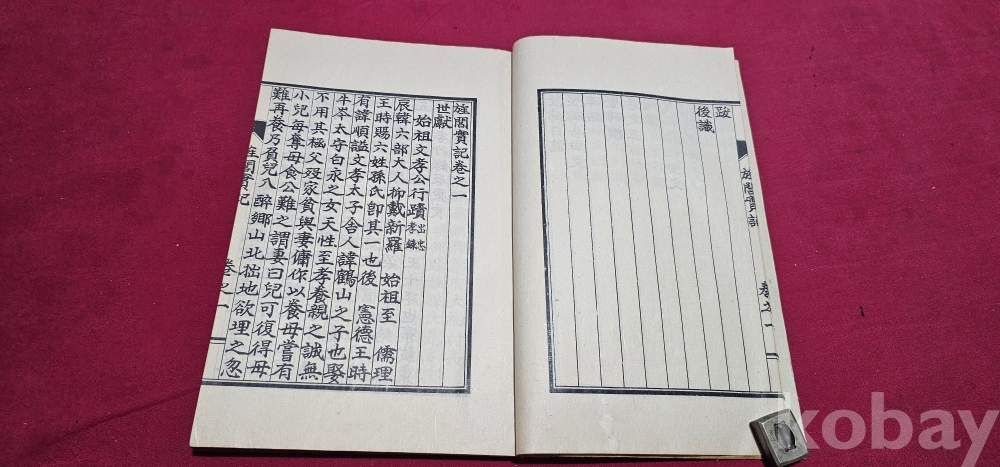 跋
後識
旌閭實記
卷之一
旌閭實記卷之一
世獻
始祖文孝公行蹟出忠孝錄
辰韓六部大人仰戴新羅 始祖至 儒理
王時賜六姓孫氏卽其一也後 憲德王時
有諱順謚文孝太子舍人諱鶴山之子也娶
牛岑太守白永之女天性至孝養親之誠無
不用其極父歿家貧與妻傭作以養母嘗有
小兒每奪母食公難之謂妻曰兒可復得母
難再養乃負兒入醉鄕山北拙地欲理之忽
旌閭實記
卷之一
kobay